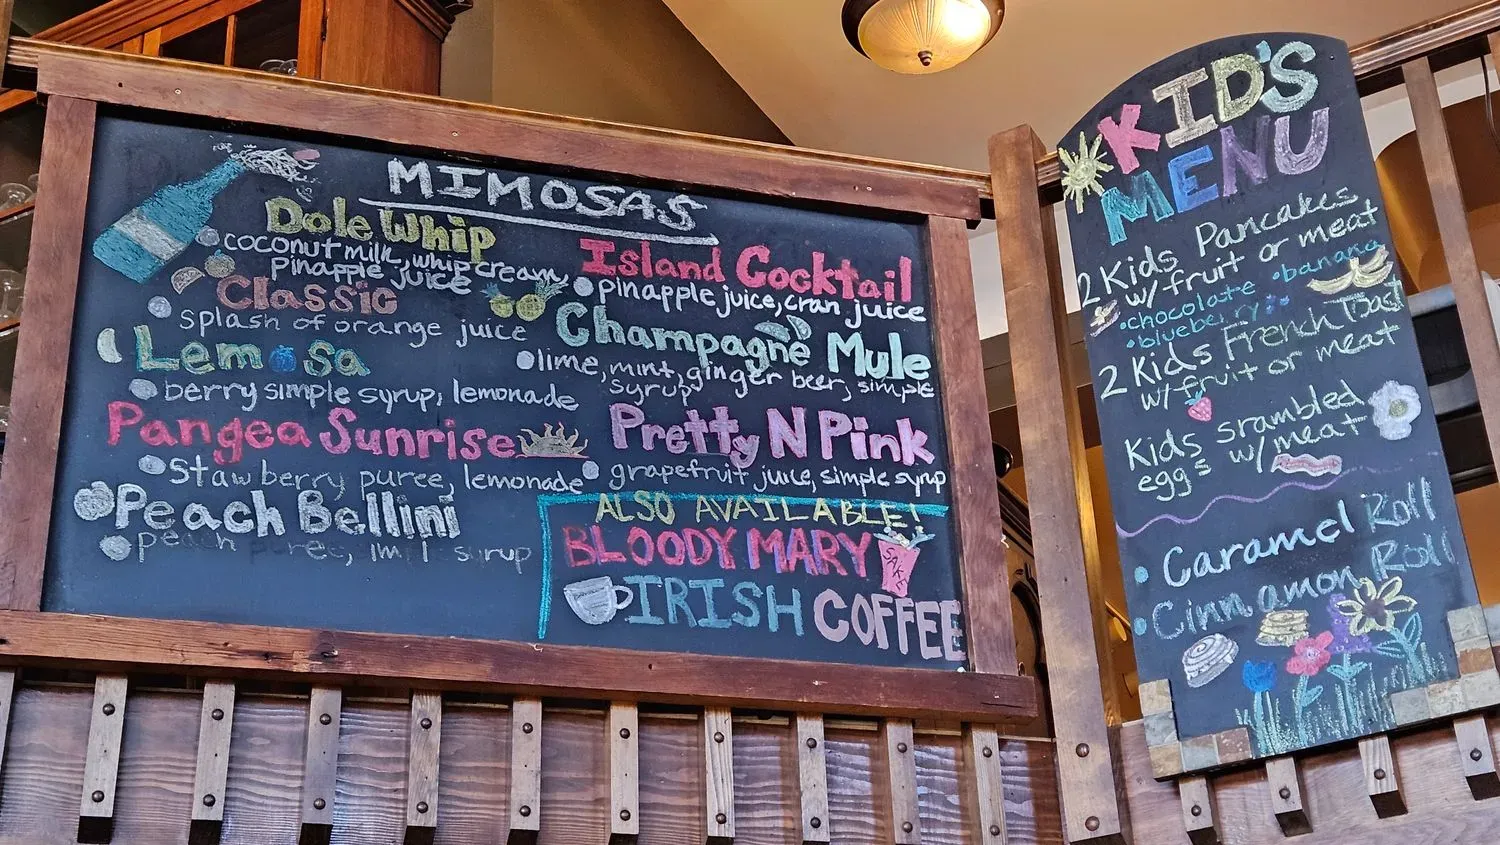 MIMOSAS
Dole Whip
coconut milk, whip cream,
pinapple juice
Classic
splash of orange juice
Lemosa
berry simple syrup, lemonade
Pangea Sunrise
stawberry puree, lemonade
Peach Bellini
peach
Island Cocktail
pinapple juice, cran juice
Champagne Mule
lime, mint, ginger beer, simple
syrup
Pretty N Pink
grapefruit juice, simple syrup
ALSO AVAILABLE!
BLOODY MARY
SAKE
IRISH COFFEE
KID'S
MENU
2 Kids Pancakes
w/ fruit or meat
•chocolate •banana
•blueberry
2 Kids French Toast
w/ fruit or meat
Kids srambled
eggs w/ meat
• Caramel Roll
• Cinnamon Roll